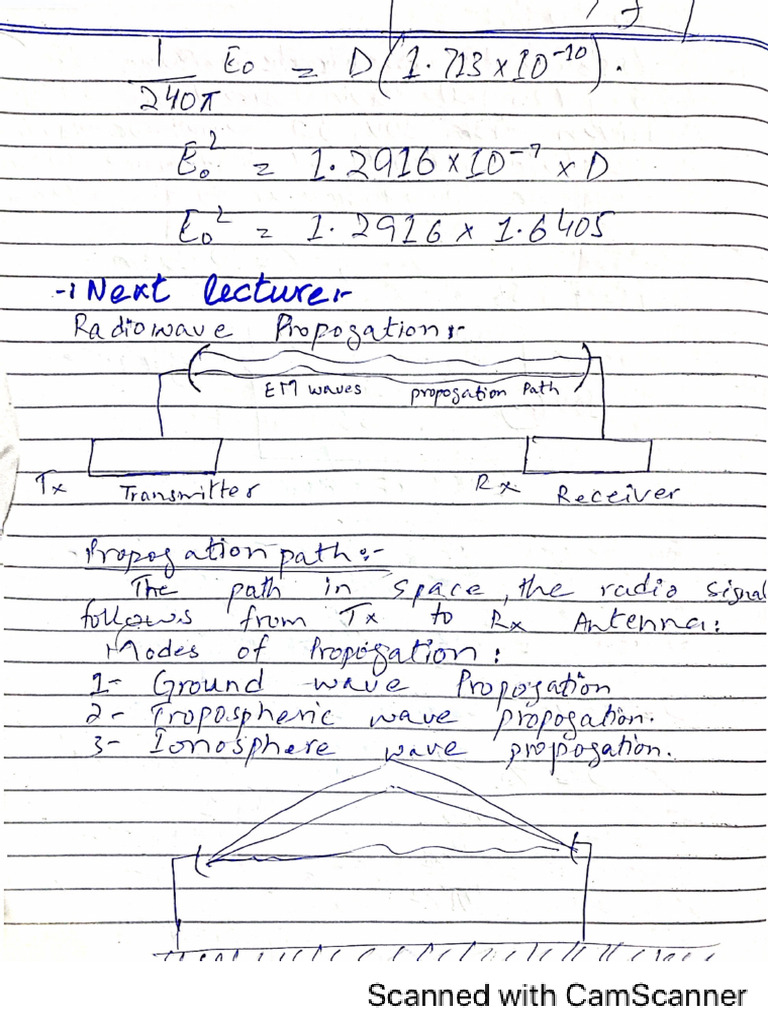 1/240π E₀ = D(1.713 × 10⁻¹⁰).
E₀² = 1.2916 × 10⁻⁷ × D
E₀² = 1.2916 × 1.6405
Next lecture:-
Radiowave Propogation:-
EM waves propogation Path
Tx Transmitter Rx Receiver
Propogation path:-
The path in space, the radio signal
follows from Tx to Rx Antenna:
Modes of Propogation:
1- Ground wave Propogation
2- Tropospheric wave propogation.
3- Ionosphere wave propogation.
Scanned with CamScanner